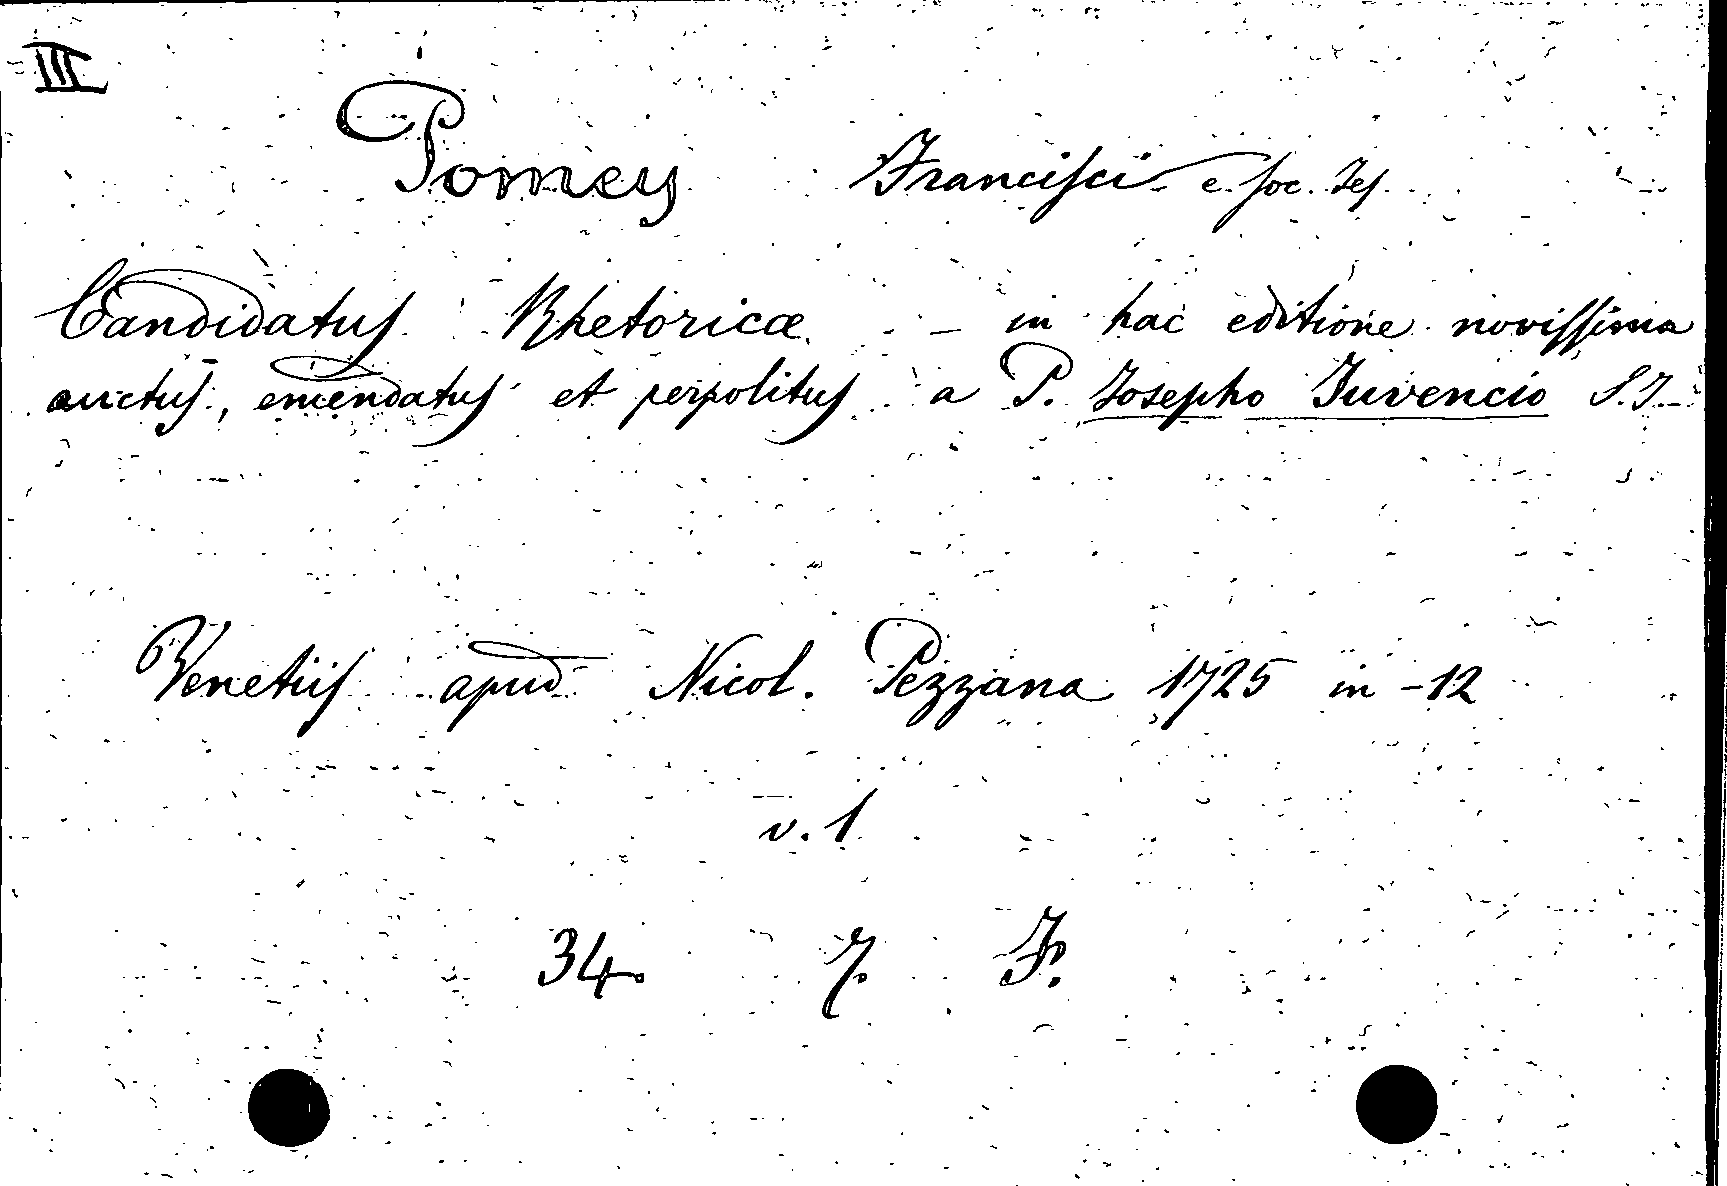 III
Pomey Francisci e Soc. Jes.
Candidatus Rhetoricæ - in hac editione novissima
auctus, emendatus et perpolitus a P. Josepho Juvencio S.J.
Venetiis apud Nicol. Pezzana 1725 in -12
v. 1
34. 7. F.